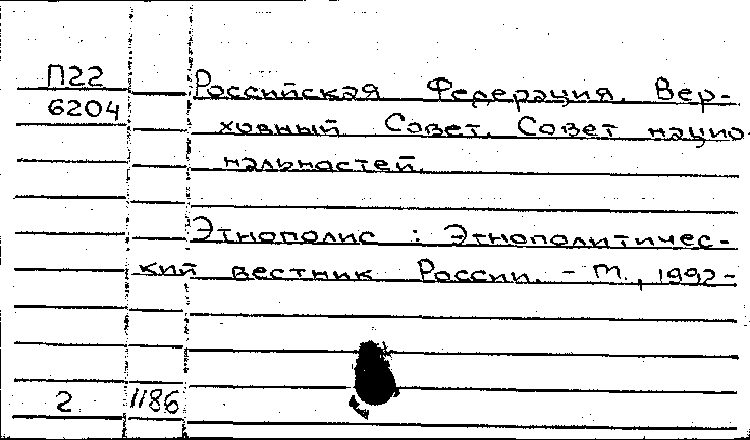 П22 Российская Федерация. Вер-
6204 ховный Совет. Совет нацио-
нальностей.
Этнополис : Этнополитичес-
кий вестник России. - М., 1992-
2 1186